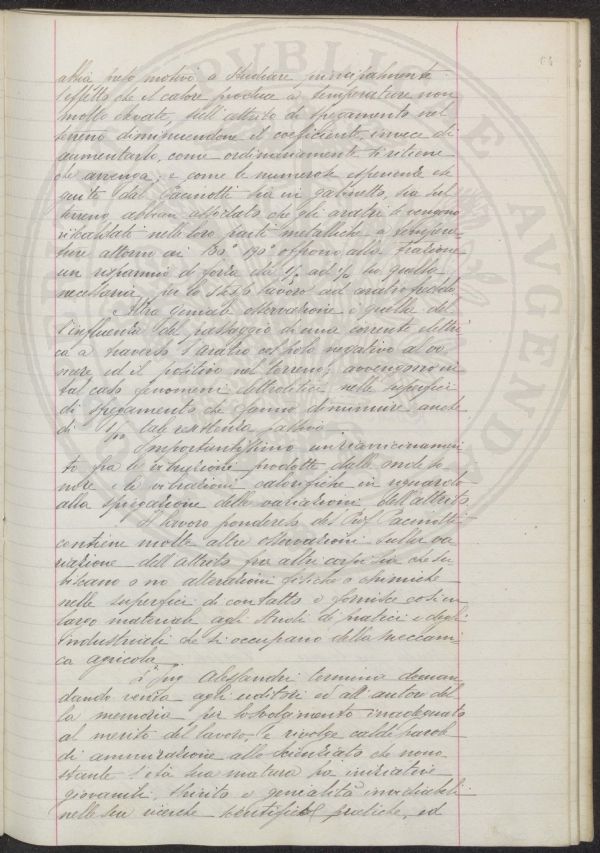 abbia preso motivi a studiare principalmente
l'effetto che il calore produce a temperature non
molto elevate, sull'attrito di sfregamento nel
terreno diminuendone il coefficiente, invece di
aumentarlo, come ordinariamente si ritiene
che avvenga, e come le numerose esperienze ese
guite dal Pacinotti sia in gabinetto, sia sul
terreno, abbian accertato che gli aratri se vengono
riscaldati nelle loro parti metalliche a tempera
ture attorno ai 180° 190° offrono alla trazione
un risparmio di forza da ad di quella
necessaria per lo stesso lavoro ad aratro freddo
Altra geniale osservazione è quella del
l'influenza del passaggio di una corrente elettri
ca a traverso l'aratro col polo negativo al vo
mere ed il positivo nel terreno; avvengono in
tal caso fenomeni elettrolitici nelle superfici
di sfregamento che fanno diminuire anche
di 1/10 tale resistenza passiva.
Importantissimo un riavvicinamen
to fra le vibrazioni prodotte dalle onde so
nore e le vibrazioni calorifiche in riguardo
alla spiegazione delle variazioni dell'attrito.
Il lavoro ponderoso del Prof. Pacinotti
contiene molte altre osservazioni sulla va
riazione dell'attrito fra altri corpi sia che su
biscano o no alterazioni fisiche o chimiche
nelle superfici di contatto e fornisce così un
largo materiale agli studi di fratici e degli
industriali che si occupano della meccani
ca agricola.
L'Ing Alessandri termina doman
dando venia agli uditori ed all'autore del
la memoria per lo svolgimento inadeguato
al merito del lavoro, e rivolge calde parole
di ammirazione allo scienziato che nono
stante l'età sua matura ha iniziative
giovanili, spirito e genialità invidiabili
nelle sue ricerche scientifiche pratiche, ed
PVBLICAE AVGENDA